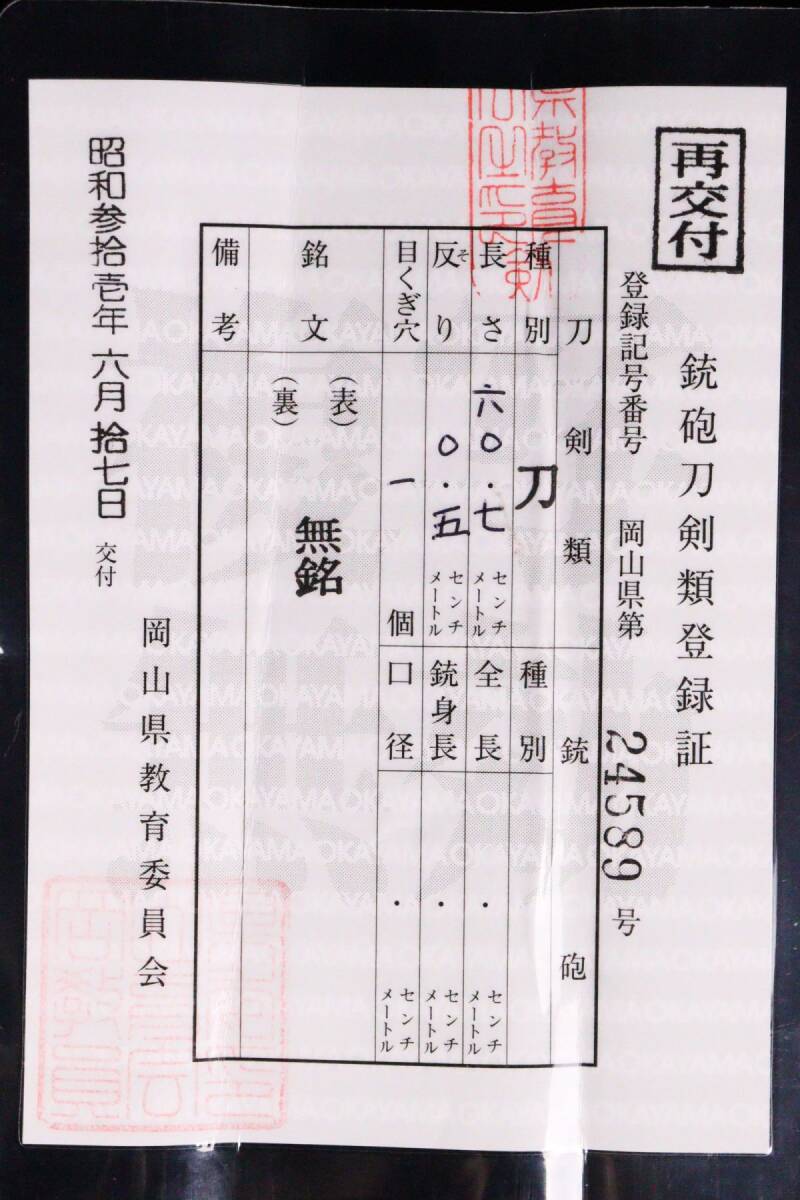 再交付
銃砲刀剣類登録証
登録記号番号 岡山県第 24589 号
刀剣類
種別 刀
長さ 六〇.七 センチメートル
反り 〇.五 センチメートル
そ
目くぎ穴 一 個
銘文 (表) (裏) 無銘
備考
銃砲
種別
全長 . センチメートル
銃身長 . センチメートル
口径 . センチメートル
昭和参拾壱年六月拾七日 交付
岡山県教育委員会
OKAYAMA